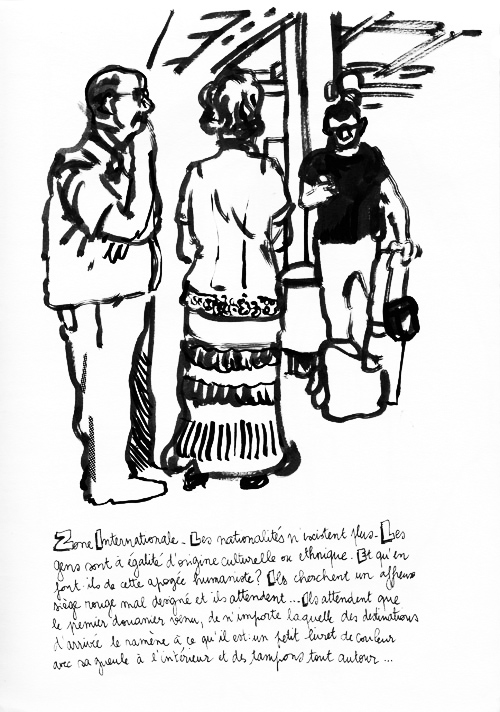 Zone Internationale. Les nationalités n'existent plus. Les
gens sont à égalité d'origine culturelle ou ethnique. Et qu'en
font-ils de cette apogée humaniste? Ils cherchent un affreux
siège rouge mal designé et ils attendent... Ils attendent que
le premier douanier venu, de n'importe laquelle des destinations
d'arrivé le ramène à ce qu'il est: un petit livret de couleur
avec sa gueule à l'intérieur et des tampons tout autour...